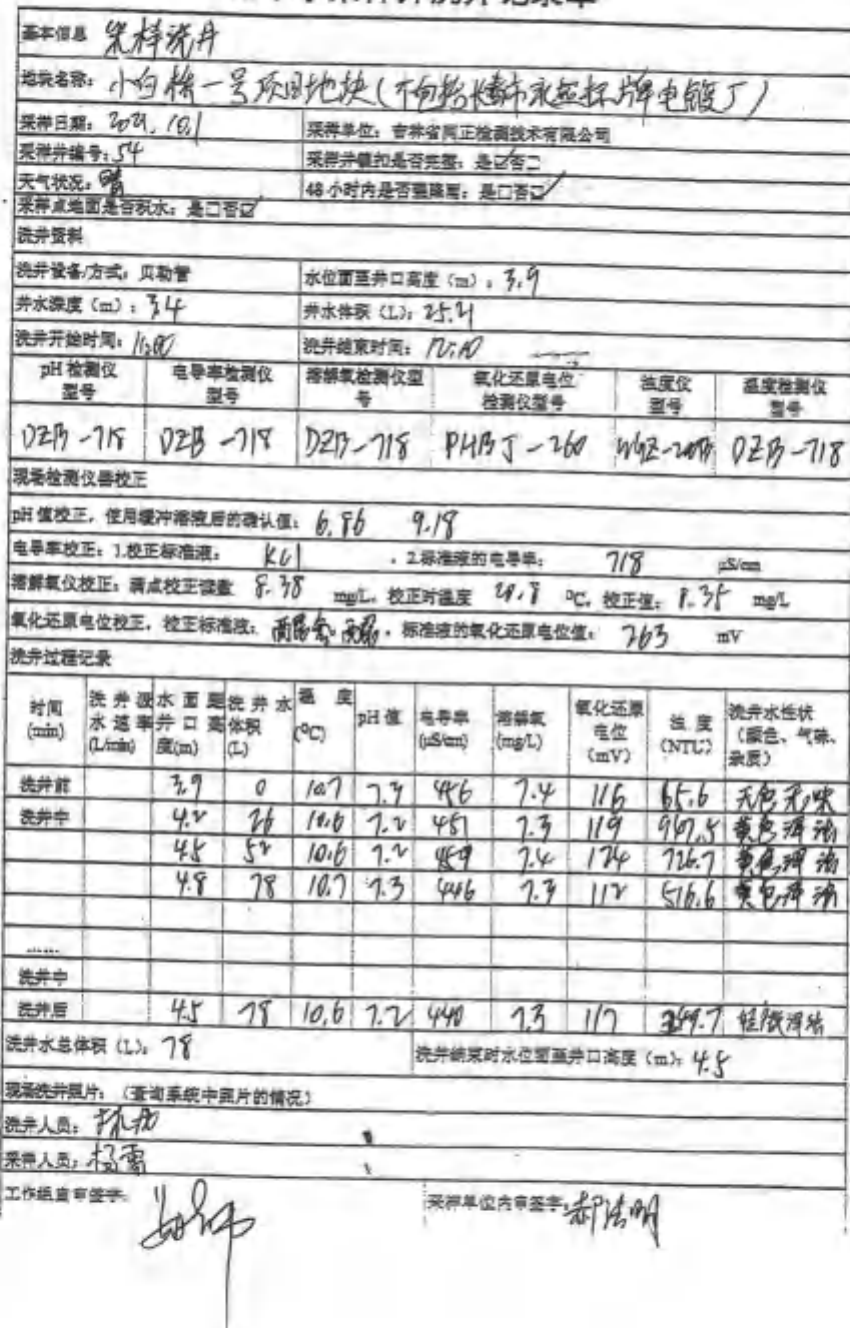 基本信息 采样洗井
地块名称：小白楼一号项目地块（不包括长春市永超标牌电镀厂）
采样日期：2021.10.1 采样单位：吉林省同正检测技术有限公司
采样井编号：S4 采样井锁扣是否完整：是☑否□
天气状况：晴 48小时内是否强降雨：是□否☑
采样点地面是否积水：是□否☑
洗井资料
洗井设备/方式：贝勒管 水位面至井口高度（m）：3.9
井水深度（m）：3.4 井水体积（L）：25.21
洗井开始时间：11:00 洗井结束时间：12:10
pH 检测仪型号 电导率检测仪型号 溶解氧检测仪型号 氧化还原电位检测仪型号 浊度仪型号 温度检测仪型号
DZB-718 DZB-718 DZB-718 PHBJ-260 WGZ-200B DZB-718
现场检测仪器校正
pH 值校正，使用缓冲溶液后的确认值：6.86 9.18
电导率校正：1.校正标准液：KCl ，2.标准液的电导率：718 μS/cm
溶解氧仪校正：满点校正读数 8.38 mg/L，校正时温度 20.8 ℃，校正值：8.35 mg/L
氧化还原电位校正，校正标准液： ，标准液的氧化还原电位值：263 mV
洗井过程记录
时间(min) 洗井汲水速率(L/min) 水面距井口高度(m) 洗井水体积(L) 温度(℃) pH 值 电导率(μS/cm) 溶解氧(mg/L) 氧化还原电位(mV) 浊度(NTU) 洗井水性状（颜色、气味、杂质）
洗井前 3.9 0 10.7 7.3 456 7.4 116 65.6 无色无味
洗井中 4.2 26 10.6 7.2 451 7.3 119 967.5 黄色浑浊
4.5 52 10.6 7.2 459 7.4 124 726.7 黄色浑浊
4.8 78 10.7 7.3 446 7.3 112 516.6 黄色浑浊
……
洗井中
洗井后 4.5 78 10.6 7.2 440 7.3 117 349.7 轻微浑浊
洗井水总体积（L）：78 洗井结束时水位面至井口高度（m）：4.5
现场洗井照片：（查询系统中照片的情况）
洗井人员：
采样人员：杨雪
工作组自审签字： 采样单位内审签字：郝浩明